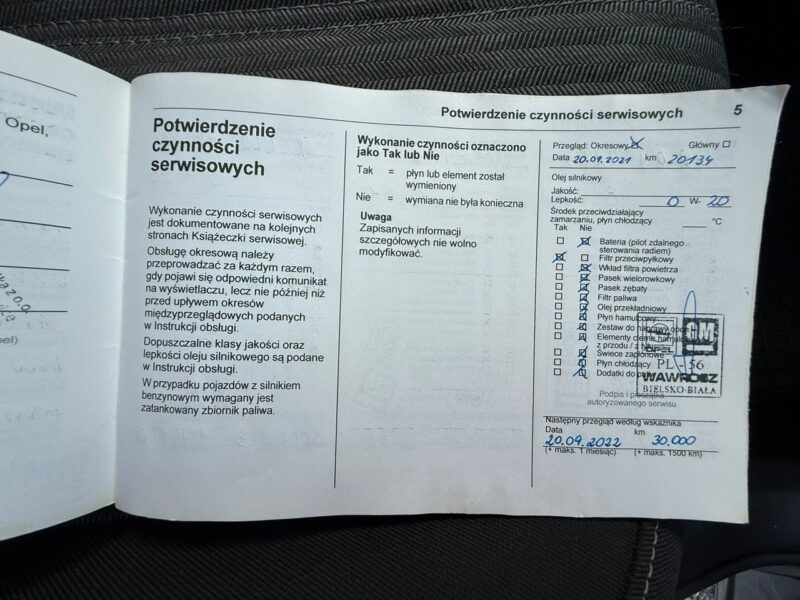 Opel,
el)
Potwierdzenie czynności serwisowych 5
Potwierdzenie
czynności
serwisowych
Wykonanie czynności serwisowych
jest dokumentowane na kolejnych
stronach Książeczki serwisowej.
Obsługę okresową należy
przeprowadzać za każdym razem,
gdy pojawi się odpowiedni komunikat
na wyświetlaczu, lecz nie później niż
przed upływem okresów
międzyprzeglądowych podanych
w Instrukcji obsługi.
Dopuszczalne klasy jakości oraz
lepkości oleju silnikowego są podane
w Instrukcji obsługi.
W przypadku pojazdów z silnikiem
benzynowym wymagany jest
zatankowany zbiornik paliwa.
Wykonanie czynności oznaczono
jako Tak lub Nie
Tak = płyn lub element został
wymieniony
Nie = wymiana nie była konieczna
Uwaga
Zapisanych informacji
szczegółowych nie wolno
modyfikować.
Przegląd: Okresowy Główny
Data 20.09.2021 km 20134
Olej silnikowy
Jakość:
Lepkość: 0 W- 20
Środek przeciwdziałający
zamarzaniu, płyn chłodzący °C
Tak Nie
Bateria (pilot zdalnego
sterowania radiem)
Filtr przeciwpyłkowy
Wkład filtra powietrza
Pasek wielorowkowy
Pasek zębaty
Filtr paliwa
Olej przekładniowy
Płyn hamulcowy
Zestaw do naprawy opon
Elementy cierne hamulców
z przodu / z
Świece zapłonowe
Płyn chłodzący
Dodatki do
OPEL GM
PL - 56
WAWROSZ
BIELSKO-BIAŁA
Podpis i pieczątka
autoryzowanego serwisu
Następny przegląd według wskaźnika
Data km
20.09.2022 30.000
(+ maks. 1 miesiąc) (+ maks. 1500 km)